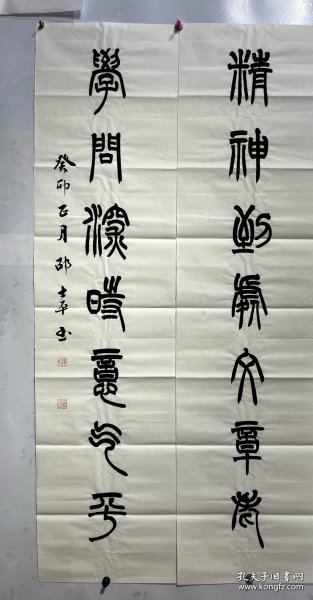 精神到處文章老
學問深時意氣平
癸卯正月邵士平书
孔夫子旧书网
www.kongfz.com